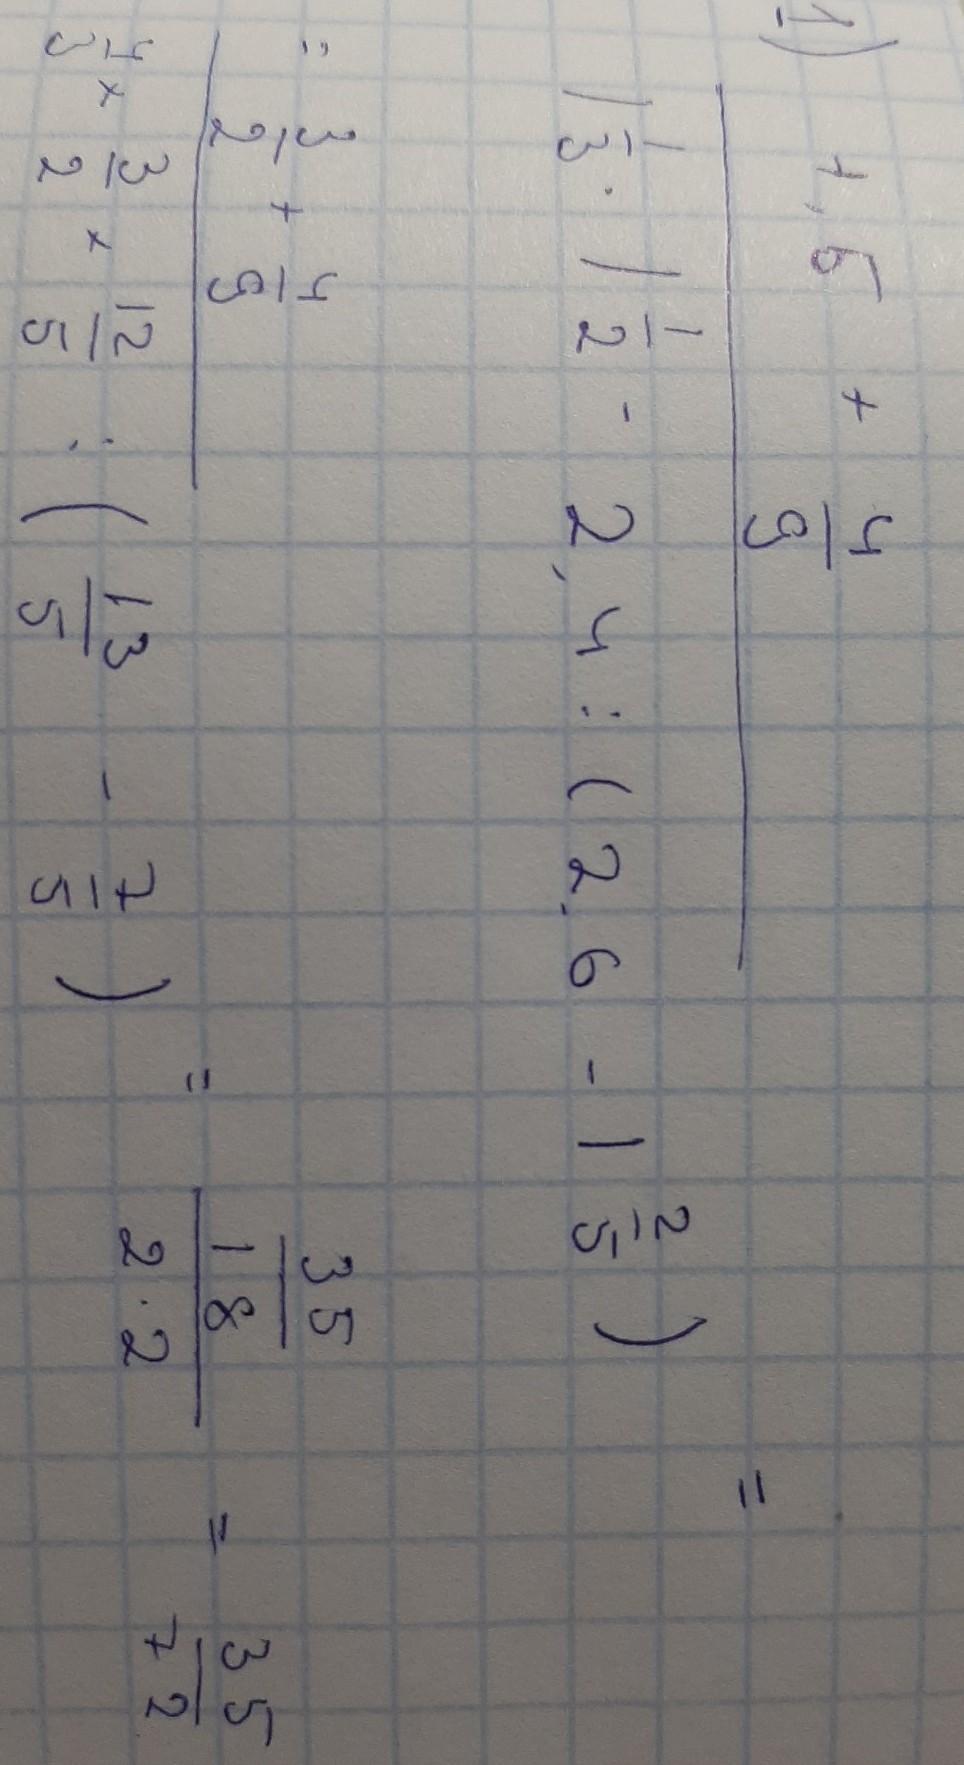 1)
1,5 + 4/9
1 1/3 · 1 1/2 - 2,4 : (2.6 - 1 2/5) =
= 3/2 + 4/9
4/3 × 3/2 × 12/5 : (13/5 - 7/5) = 35/18 / 2·2 = 35/72